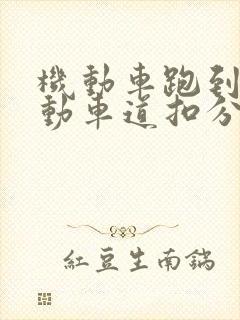 機動車跑到
動車道扣分
紅豆生南鍋